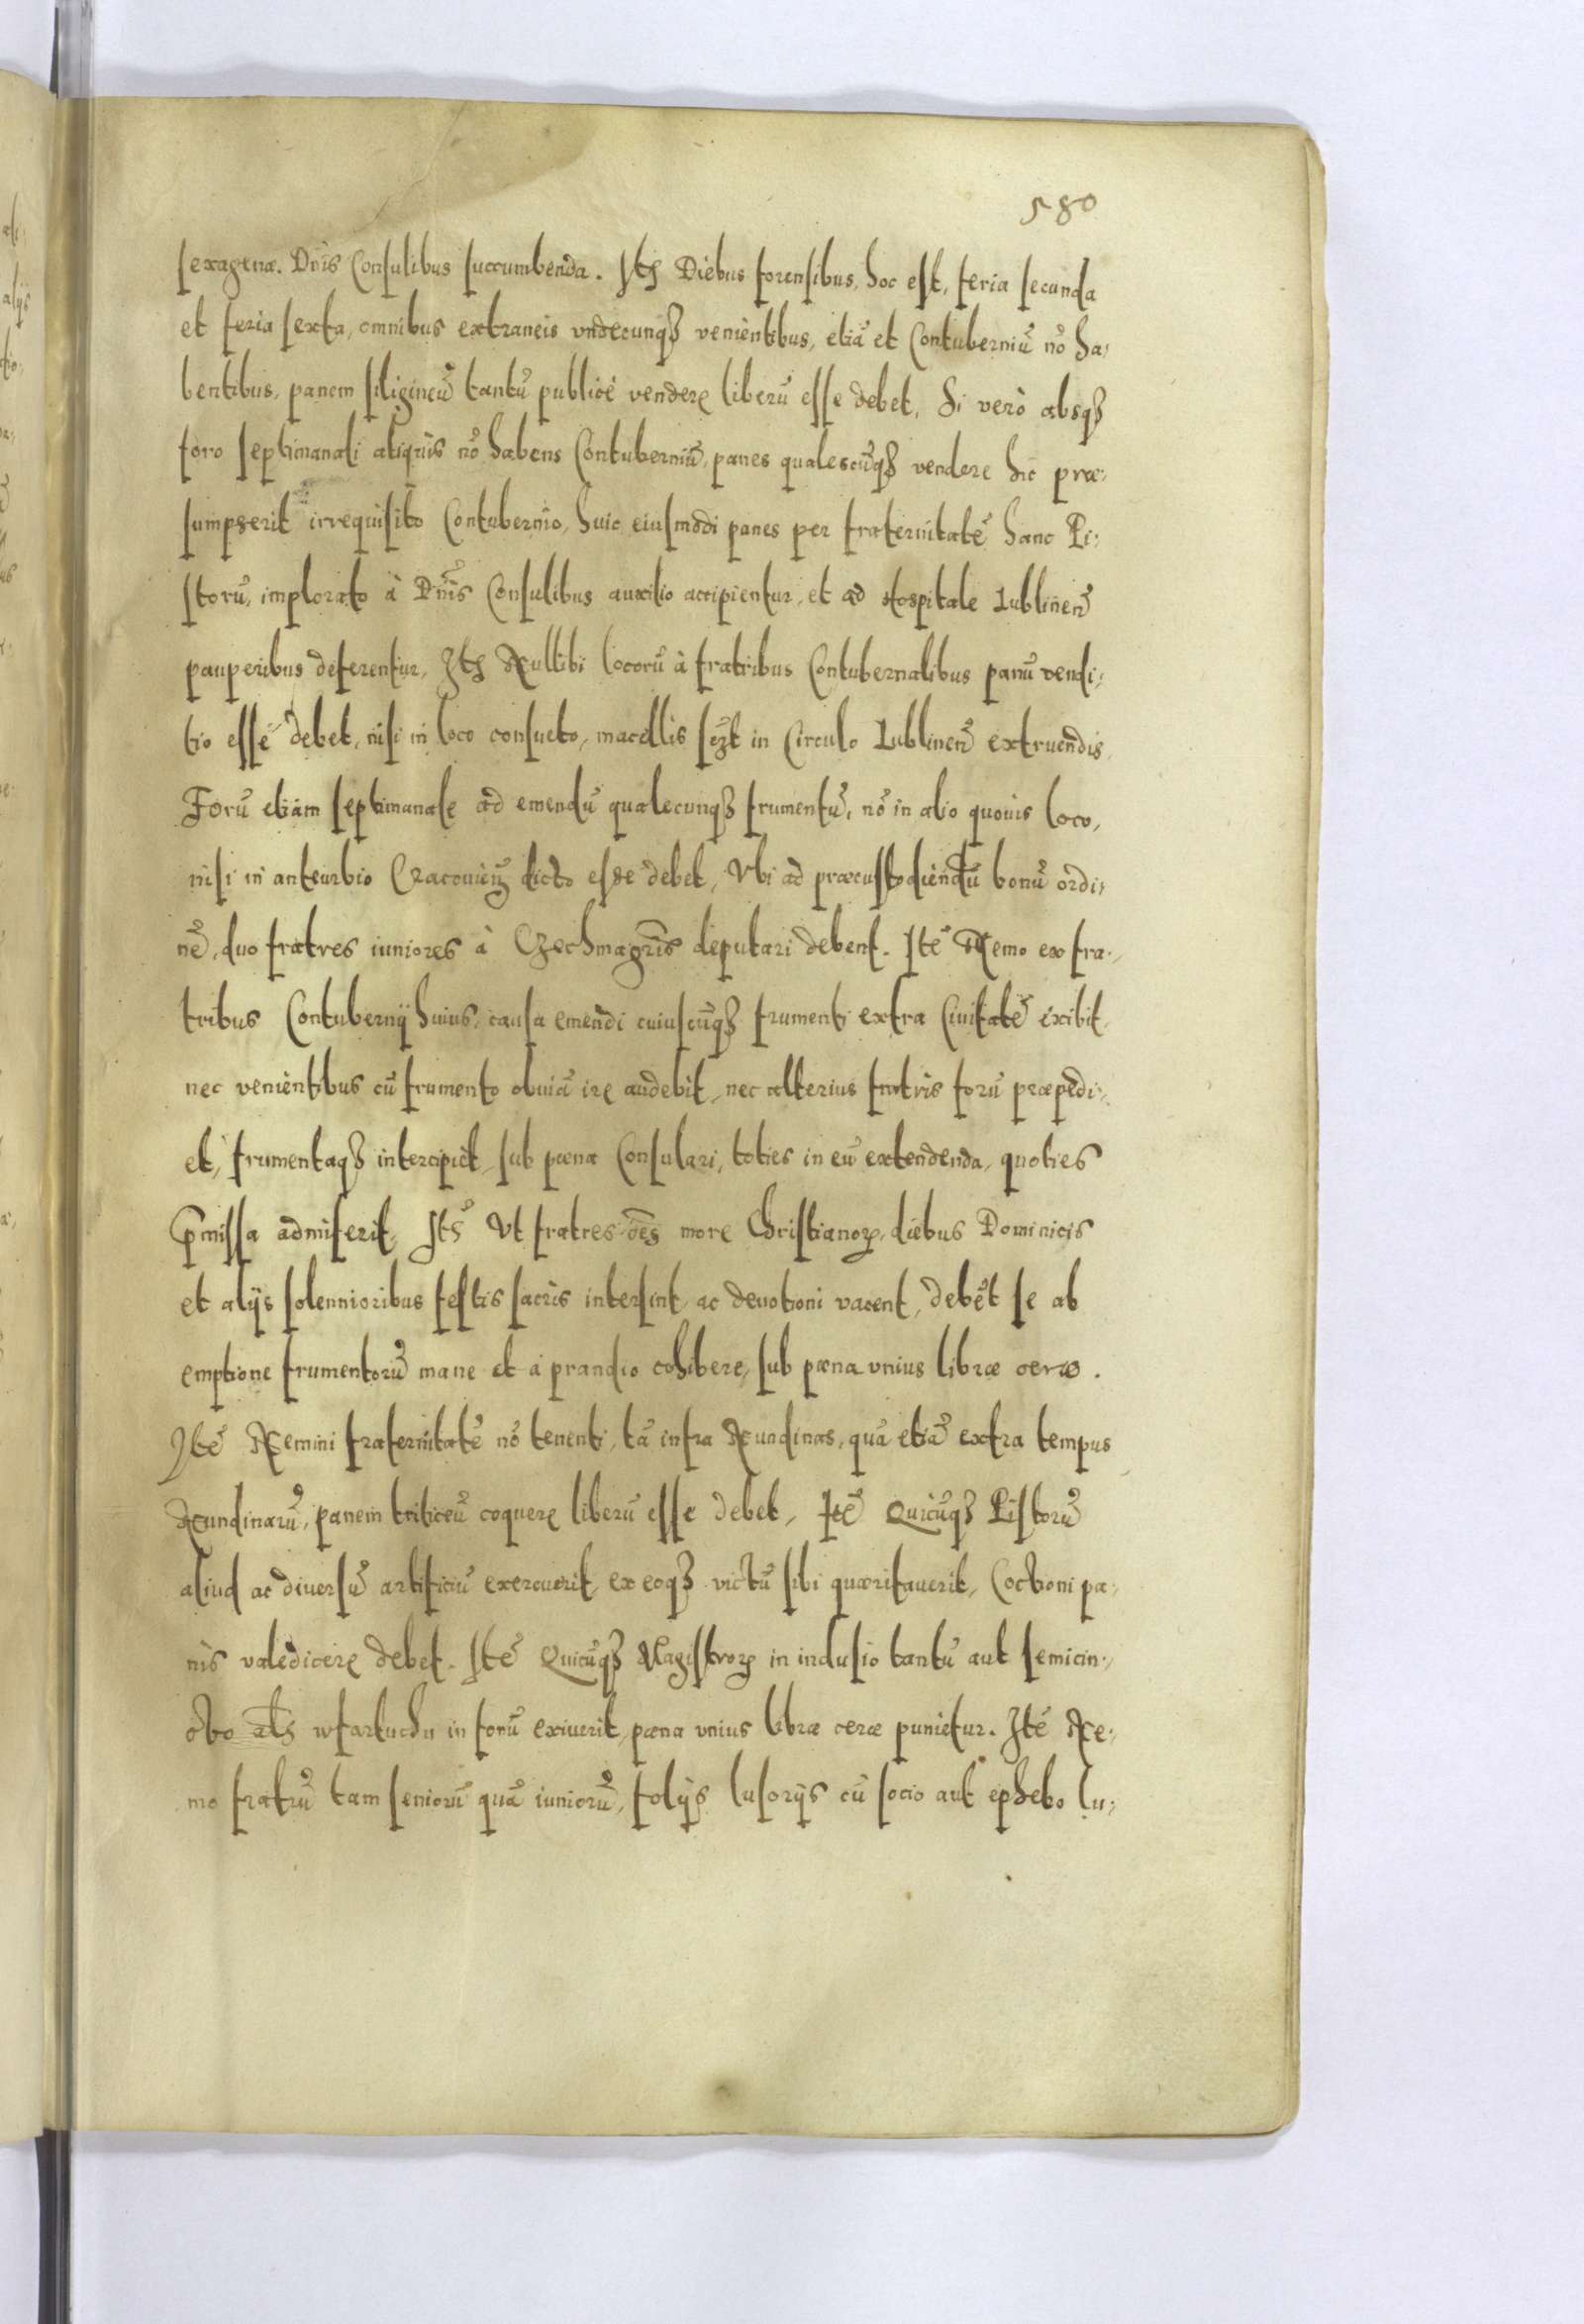 580
sexagenæ. Dn̄is Consulibus succumbenda. Itꝫ Diebus forensibus, hoc est, feria secunda
et feria sexta, omnibus extraneis vndecunqꝫ venientibus, etiā et Contuberniū nō ha⸗
bentibus, panem siligineū tantū publicè vendere liberū esse debet, Si verò absqꝫ
foro septimanali aliquis nō habens Contuberniū, panes qualescūqꝫ vendere hic præ⸗
sumpserit irrequisito Contubernio, huic eiusmodi panes per fraternitatē hanc Pi⸗
storū, implorato à Dn̄is Consulibus auxilio accipientur, et ad Hospitale Lublineñ
pauperibus deferentur, Itꝫ Nullibi locorū à fratribus Contubernalibus panū vendi⸗
tio esse debet, nisi in loco consueto, macellis sczt in Circulo Lublineñ extruendis,
Forū etiam septimanale ad emendū qualecunqꝫ frumentū, nō in alio quouis loco,
nisi in anteurbio Cracouieñ dicto esse debet, Vbi ad præcustodiendū bonū ordi⸗
nē, duo fratres iuniores à Czechmagrīs deputari debent. Itē Nemo ex fra⸗
tribus Contubernij huius, causa emendi cuiuscūqꝫ frumenti extra Ciuitatē exibit,
nec venientibus cū frumento obuiā ire audebit, nec alterius fratris forū præpedi⸗
et, frumentaqꝫ intercipiet, sub pœna Consulari, toties in eū extendenda, quoties
p̄missa admiserit, Itē Vt fratres oēs more Christianoꝝ, diebus Dominicis
et alijs solennioribus festis sacris intersint, ac deuotioni vacent, debēt se ab
emptione frumentorū mane et à prandio cohibere, sub pœna vnius libræ ceræ.
Itē Nemini fraternitatē nō tenenti, tā infra Nundinas, quā etiā extra tempus
Nundinarū, panem triticeū coquere liberū esse debet, Itē Quicūqꝫ Pistorū
aliud ac diuersū artificiū exercuerit, ex eoqꝫ victū sibi quæritauerit, Coctioni pa⸗
nis valedicere debet. Itē Quicūqꝫ Magistroꝝ in indusio tantū aut semicin⸗
cto als wfartuchu in forū exiuerit, pœna vnius libræ ceræ punietur. Itē Ne⸗
mo fratrū tam seniorū quā iuniorū, folijs lusorijs cū socio aut ephebo lu⸗